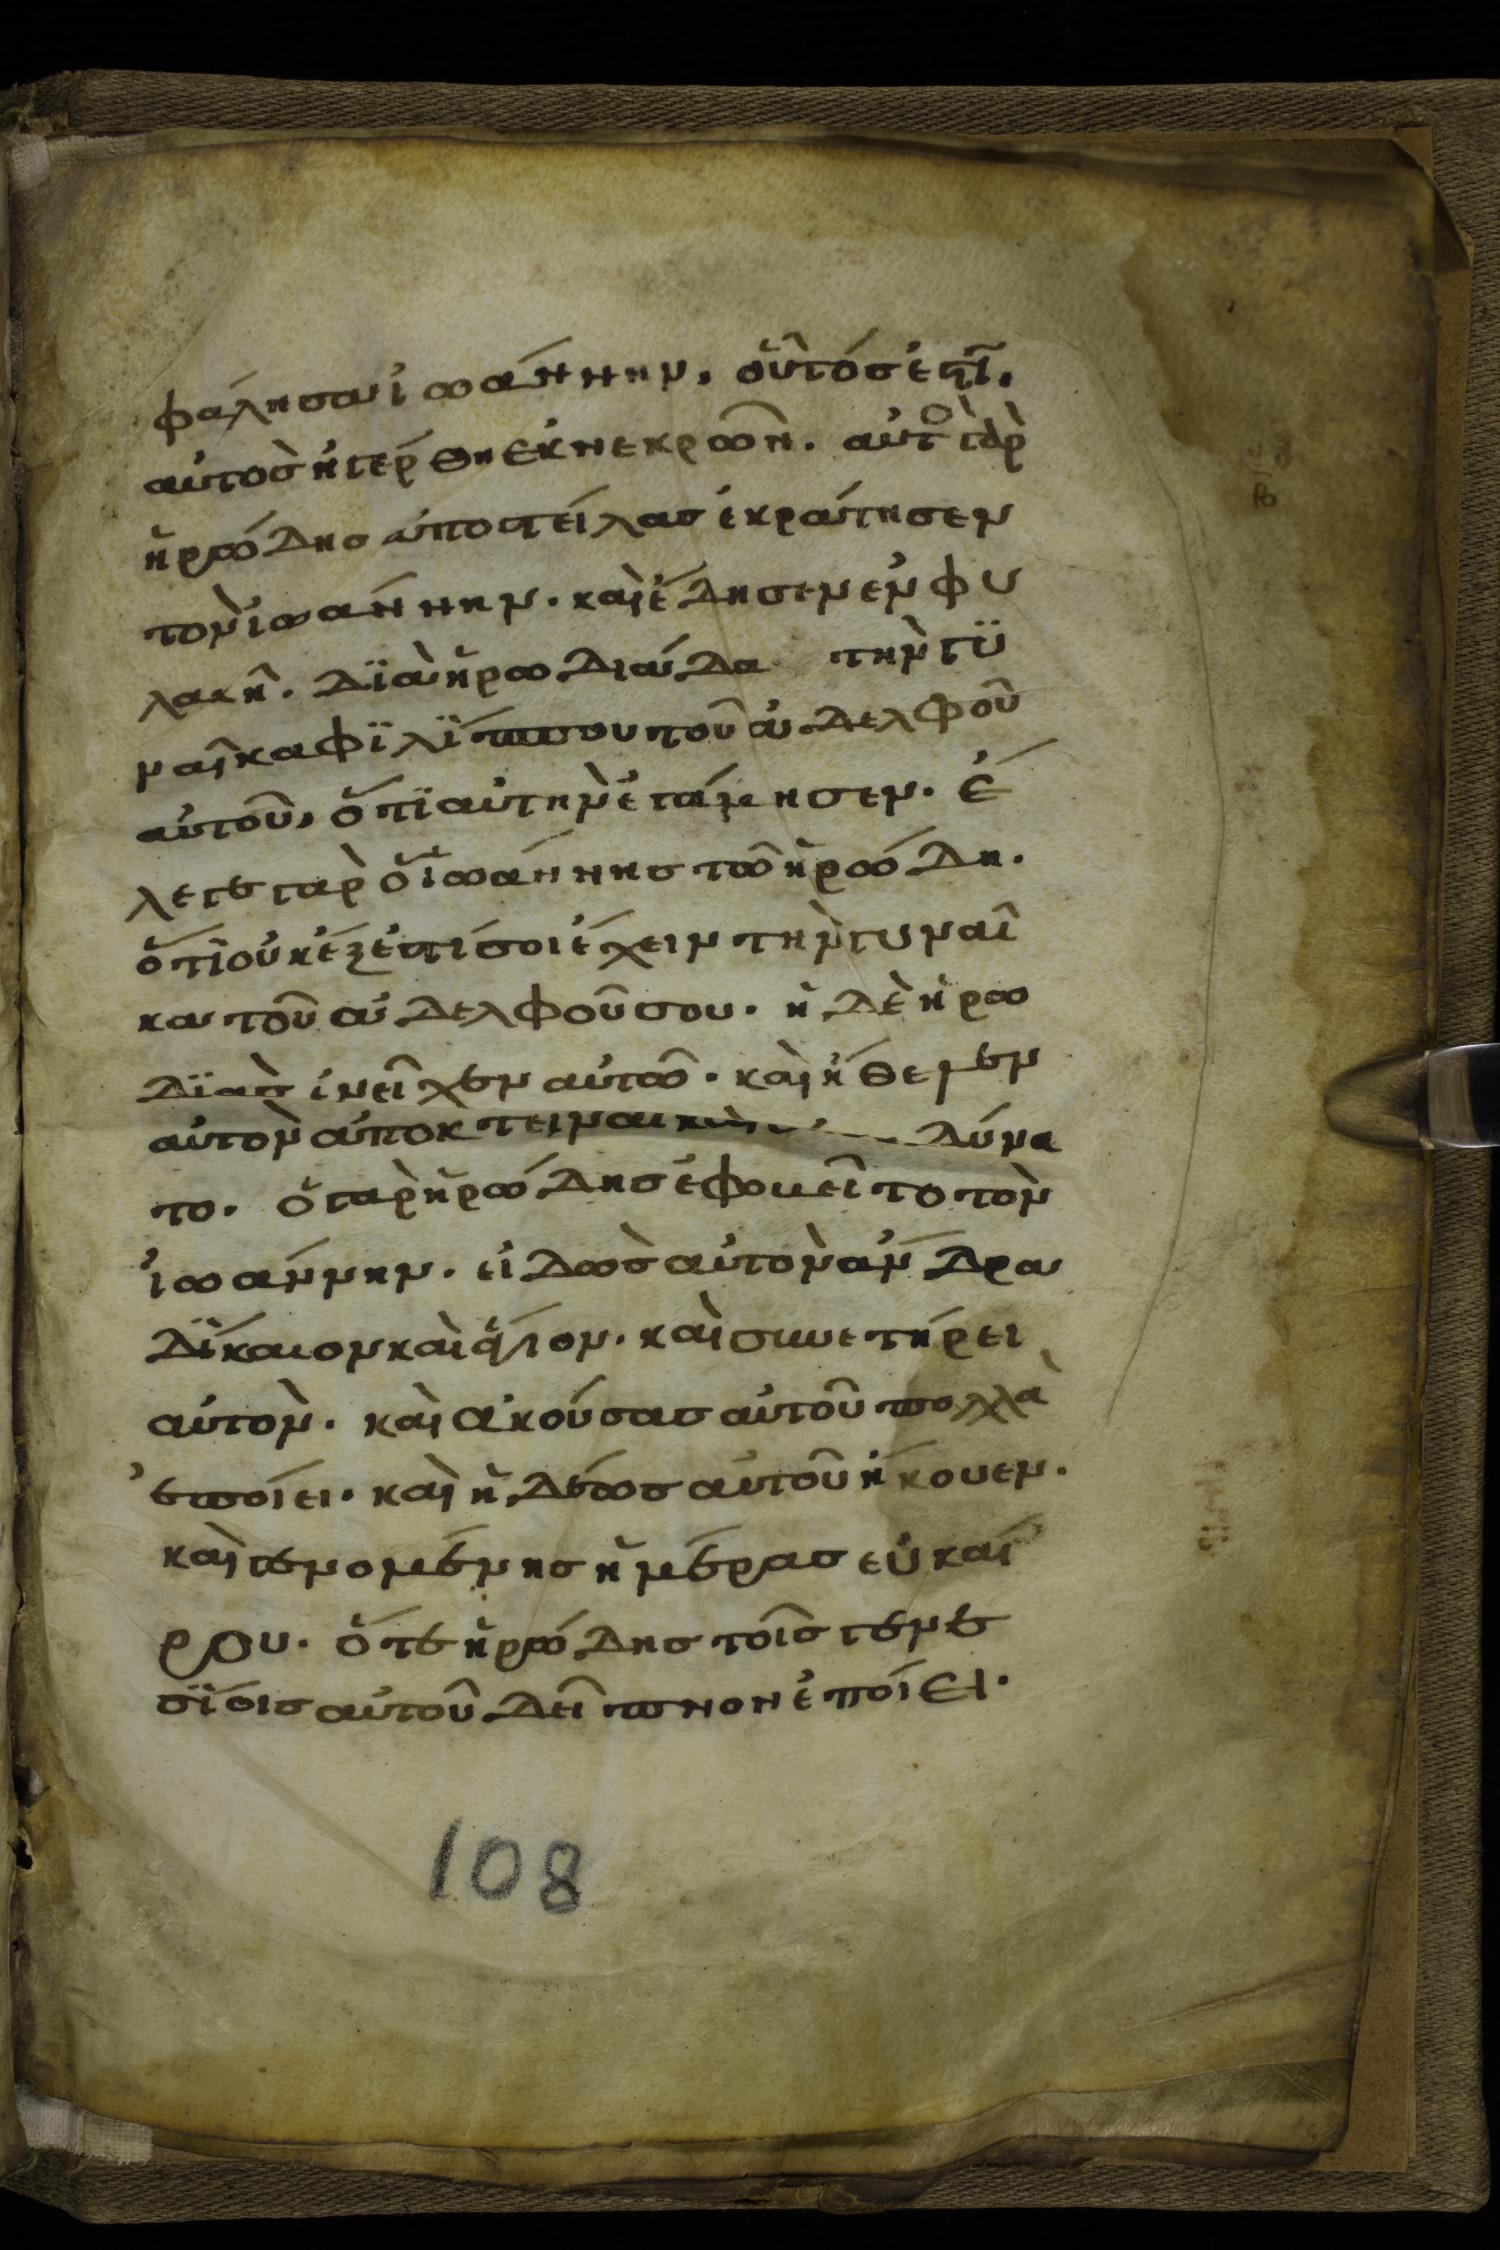 φάλησα ἰωάννην, οὗτός ἐστι,
αὐτὸς ἠγέρθη ἐκ νεκρῶν. αὐτὸ γὰρ
ἡρώδης ἀποστείλας ἐκράτησεν
τὸν ἰωάννην. καὶ ἔδησεν ἐν φυ
λακῆ. διὰ ἡρωδιάδα τὴν γυ
ναῖκα φιλίππου τοῦ ἀδελφοῦ
αὐτοῦ, ὅτι αὐτὴν ἐγάμησεν. ἔ
λεγε γὰρ ὁ ἰωάννης τῶ ἡρώδη.
ὅτι οὐκ ἔξεστί σοι ἔχειν τὴν γυναῖ
κα τοῦ ἀδελφοῦ σου. ἡ δὲ ἡρω
διὰς ἐνεῖχεν αὐτῶ. καὶ ἤθελεν
αὐτὸν ἀποκτεῖναι καὶ δύνα
το. ὁ γὰρ ἡρώδης ἐφοβεῖτο τὸν
ἰωάννην. εἰδὼς αὐτὸν ἄνδρα
δίκαιον καὶ ἅγιον. καὶ συνετήρει
αὐτὸν. καὶ ἀκούσας αὐτοῦ πολλὰ
ἐποίει. καὶ ἡδέως αὐτοῦ ἤκουεν.
καὶ γενομένης ἡμέρας εὐκαί
ρου. ὅτε ἡρώδης τοῖς γενε
σίοις αὐτοῦ δεῖπνον ἐποίει.
108